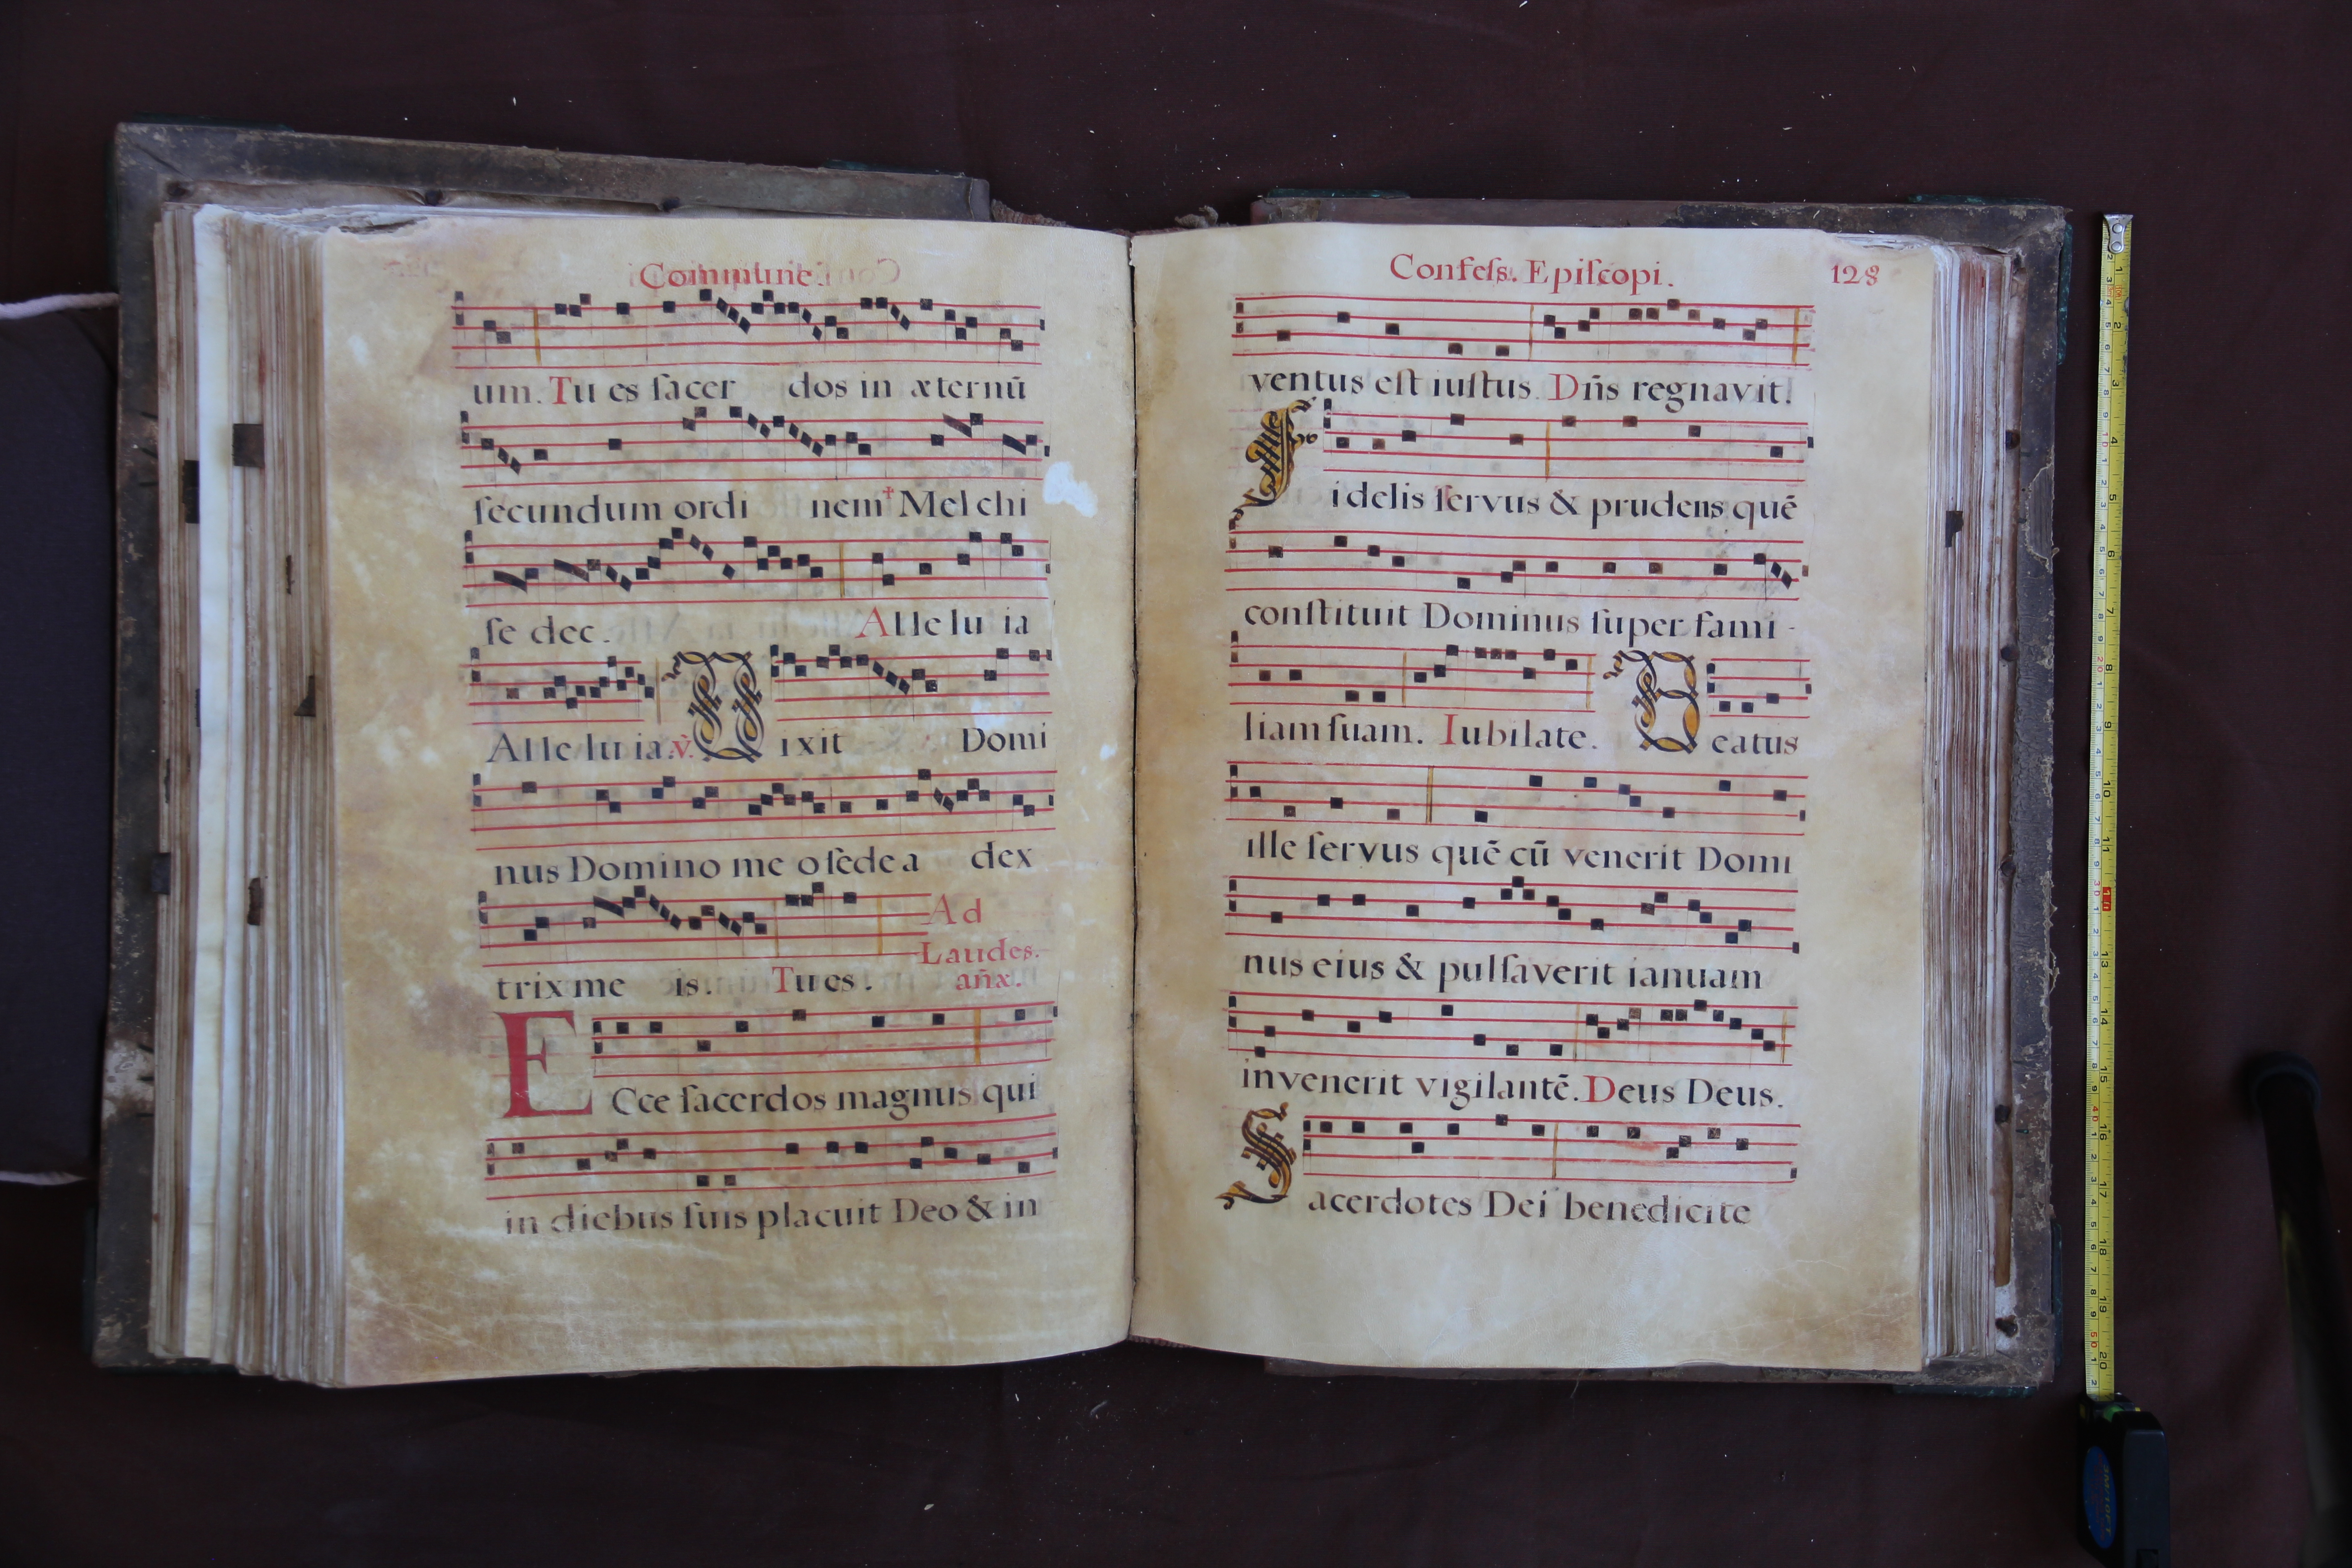 Commune.
um. Tu es ſacer dos in æternū
ſecundum ordi nem † Mel chi
ſe dec. Alle lu ia
Alle lu ia. ℣. Dixit Domi
nus Domino me o ſede a dex
trix me is. Tu es. Ad Laudes. añx.
ECce ſacerdos magnus qui
in diebus ſuis placuit Deo & in
Confeſs. Epiſcopi. 128
ventus eſt iuſtus. Dñs regnavit.
Fidelis ſervus & prudens quē
conſtituit Dominus ſuper fami-
liam ſuam. Iubilate. Beatus
ille ſervus quē cū venerit Domi
nus eius & pulſaverit ianuam
invenerit vigilantē. Deus Deus.
Sacerdotes Dei benedicite